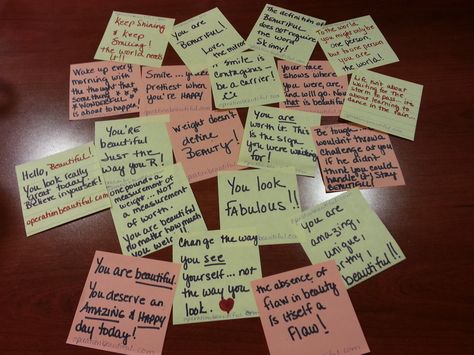 Keep Shining
& Keep
Smiling!
the world
needs
it!
You are
BEAUTIFUL!
Love,
The definition of
BEAUTIFUL
does not require
the word
Skinny!
To the world,
you might only be
one person.
but to one
person you
are the
world!
Wake up every
morning with
the thought that
something
WONDERFUL
is about to happen!
Smile...
prettiest when
you're HAPPY
smile is
contagious -
be a carrier!
operationbeautiful.com
Your face
shows where
you were, are,
and will go. Now
that is beautiful
Life not about
waiting for the
storm to pass... it's
about learning to
dance in the rain...
You're
beautiful
Just the
way you R!
Weight doesn't
define
BEAUTY!
You are
worth it. This
is the sign
you were waiting
for!
Be tough...
wouldn't throw a
challenge at you
if he didn't
think you could
handle it! Stay
BEAUTIFUL!
Hello,
Beautiful!
You look really
great today!
Believe in yourself!
operationbeautiful.com
one pound = a
measurement of
weight...
a measurement
of worth!
You are beautiful
no matter how much
you weigh!!
You look
FABULOUS!!
operationbeautiful.com
you are
amazing,
unique!
beautiful!!
Change the way
you see
yourself... not
the way you
look.
operationbeautiful.com
You are beautiful.
You deserve an
AMAZING & HAPPY
day today!
operationbeautiful.com
the absence of
flaw in beauty
is itself a
flaw!